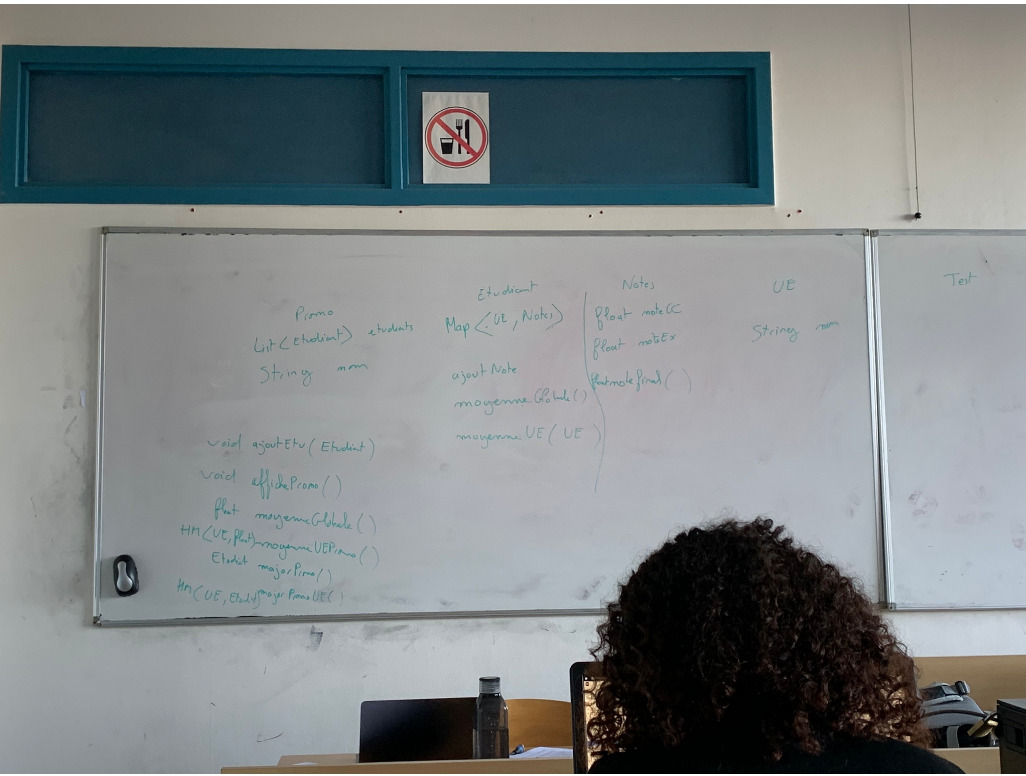 Promo
List<Etudiant> etudiants
String nom
void ajoutEtu(Etudiant)
void affichePromo()
float moyenneGlobale()
HM<UE,float> moyenneUEPromo()
Etudiat majorPromo()
HM<UE,Etudiat> majorPromoUE()
Etudiant
Map<UE, Notes>
ajoutNote
moyenneGlobale()
moyenneUE(UE)
Notes
float noteCC
float noteEx
float noteFinal()
UE
String nom
Test